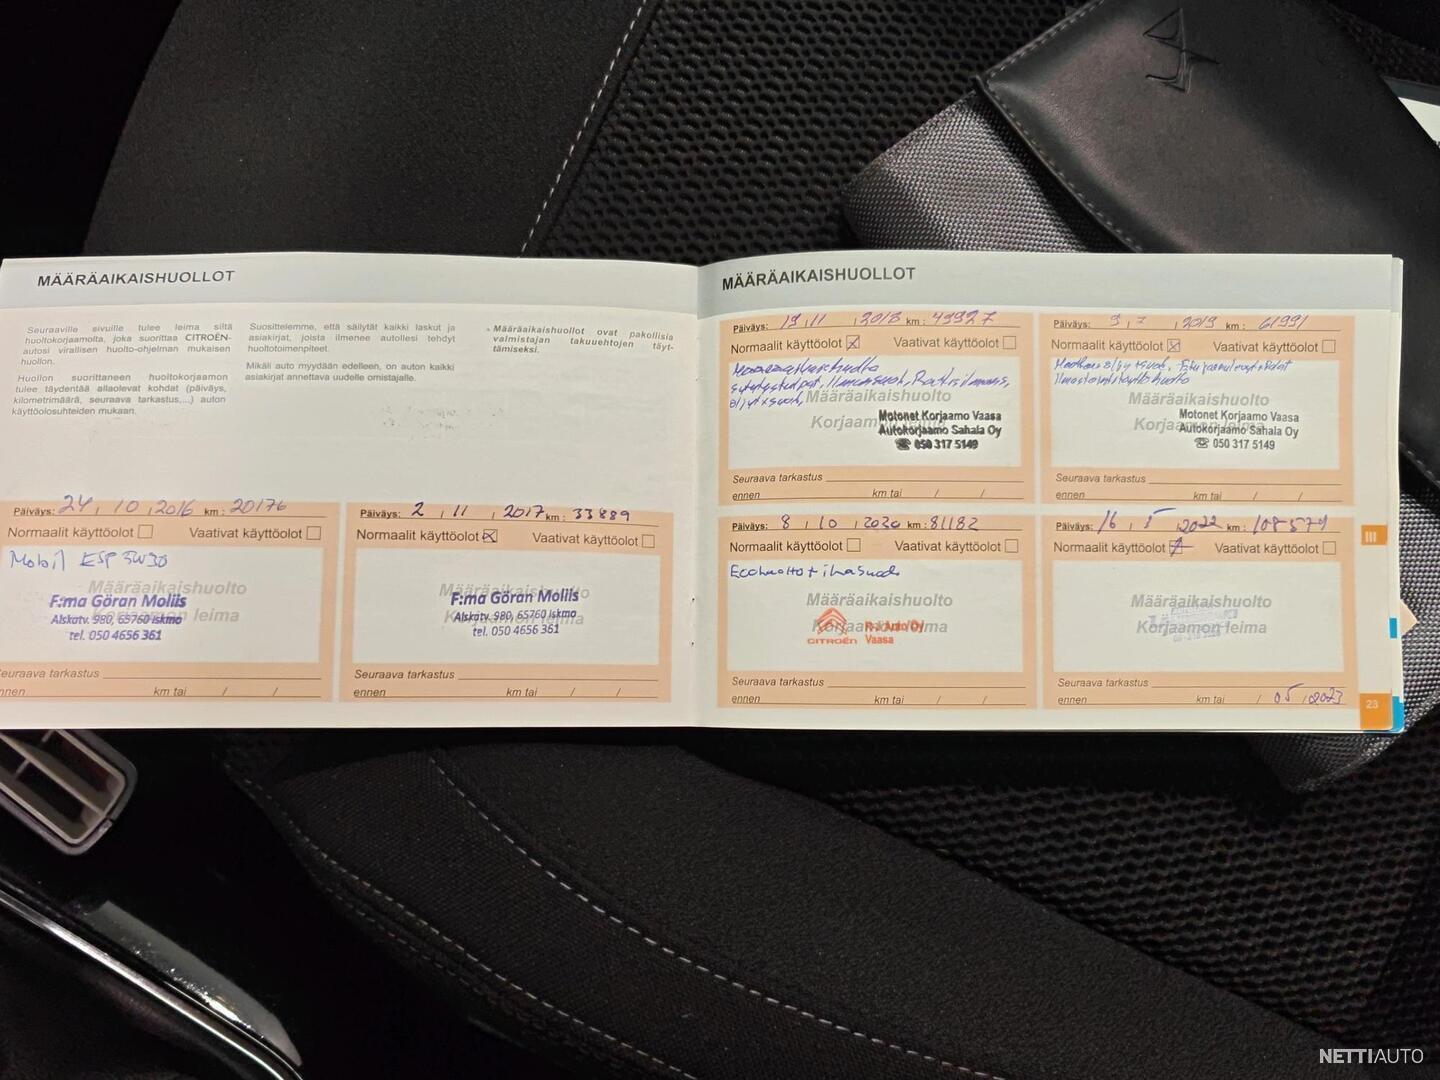 MÄÄRÄAIKAISHUOLLOT
Seuraaville sivuille tulee leima siltä
huoltokorjaamolta, joka suorittaa CITROËN-
autosi virallisen huolto-ohjelman mukaisen
huollon.
Huollon suorittaneen huoltokorjaamon
tulee täydentää allaolevat kohdat (päiväys,
kilometrimäärä, seuraava tarkastus,...) auton
käyttöolosuhteiden mukaan.
Suosittelemme, että säilytät kaikki laskut ja
asiakirjat, joista ilmenee autollesi tehdyt
huoltotoimenpiteet.
Mikäli auto myydään edelleen, on auton kaikki
asiakirjat annettava uudelle omistajalle.
- Määräaikaishuollot ovat pakollisia
valmistajan takuuehtojen täyt-
tämiseksi.
Päiväys: 24 / 10 / 2016 km: 20176
Normaalit käyttöolot Vaativat käyttöolot
Mobil ESP 5W30
Määräaikaishuolto
Korjaamon leima
F:ma Göran Moliis
Alskatv. 980, 65760 Iskmo
tel. 050 4656 361
Seuraava tarkastus
ennen km tai / /
Päiväys: 2 / 11 / 2017 km: 33889
Normaalit käyttöolot Vaativat käyttöolot
Määräaikaishuolto
Korjaamon leima
F:ma Göran Moliis
Alskatv. 980, 65760 Iskmo
tel. 050 4656 361
Seuraava tarkastus
ennen km tai / /
MÄÄRÄAIKAISHUOLLOT
Päiväys: 19 / 11 / 2018 km: 49927
Normaalit käyttöolot Vaativat käyttöolot
Määräaikaishuolto
sytytystulpat, ilmansuod, Raitisilmans,
öljyt+suod,
Määräaikaishuolto
Korjaamon leima
Motonet Korjaamo Vaasa
Autokorjaamo Sahala Oy
☎ 050 317 5149
Seuraava tarkastus
ennen km tai / /
Päiväys: 9 / 7 / 2019 km: 61991
Normaalit käyttöolot Vaativat käyttöolot
Ilmastointilaitehuolto
Määräaikaishuolto
Korjaamon leima
Motonet Korjaamo Vaasa
Autokorjaamo Sahala Oy
☎ 050 317 5149
Seuraava tarkastus
ennen km tai / /
Päiväys: 8 / 10 / 2020 km: 81182
Normaalit käyttöolot Vaativat käyttöolot
Ecohuolto +
Määräaikaishuolto
Korjaamon leima
CITROËN
Vaasa
Seuraava tarkastus
ennen km tai / /
Päiväys: 16 / 5 / 2022 km: 108571
Normaalit käyttöolot Vaativat käyttöolot
Määräaikaishuolto
Korjaamon leima
Seuraava tarkastus
ennen km tai / 05 / 2023
III
23
NETTIAUTO